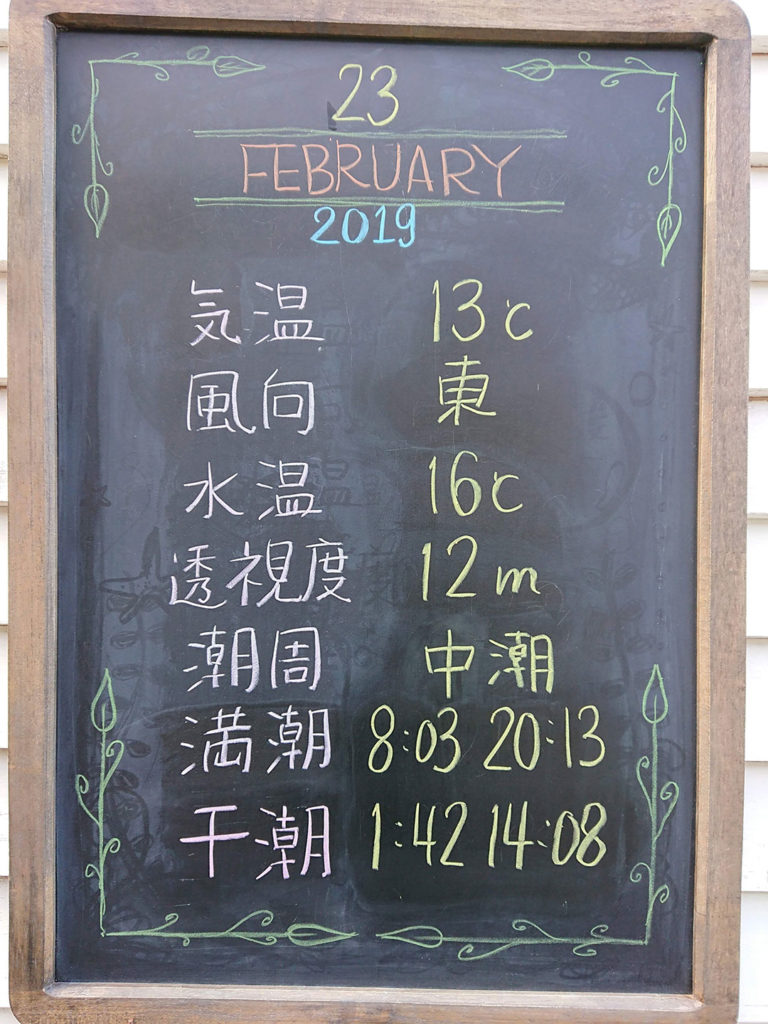 23
FEBRUARY
2019
気温 13c
風向 東
水温 16c
透視度 12m
潮周 中潮
満潮 8:03 20:13
干潮 1:42 14:08